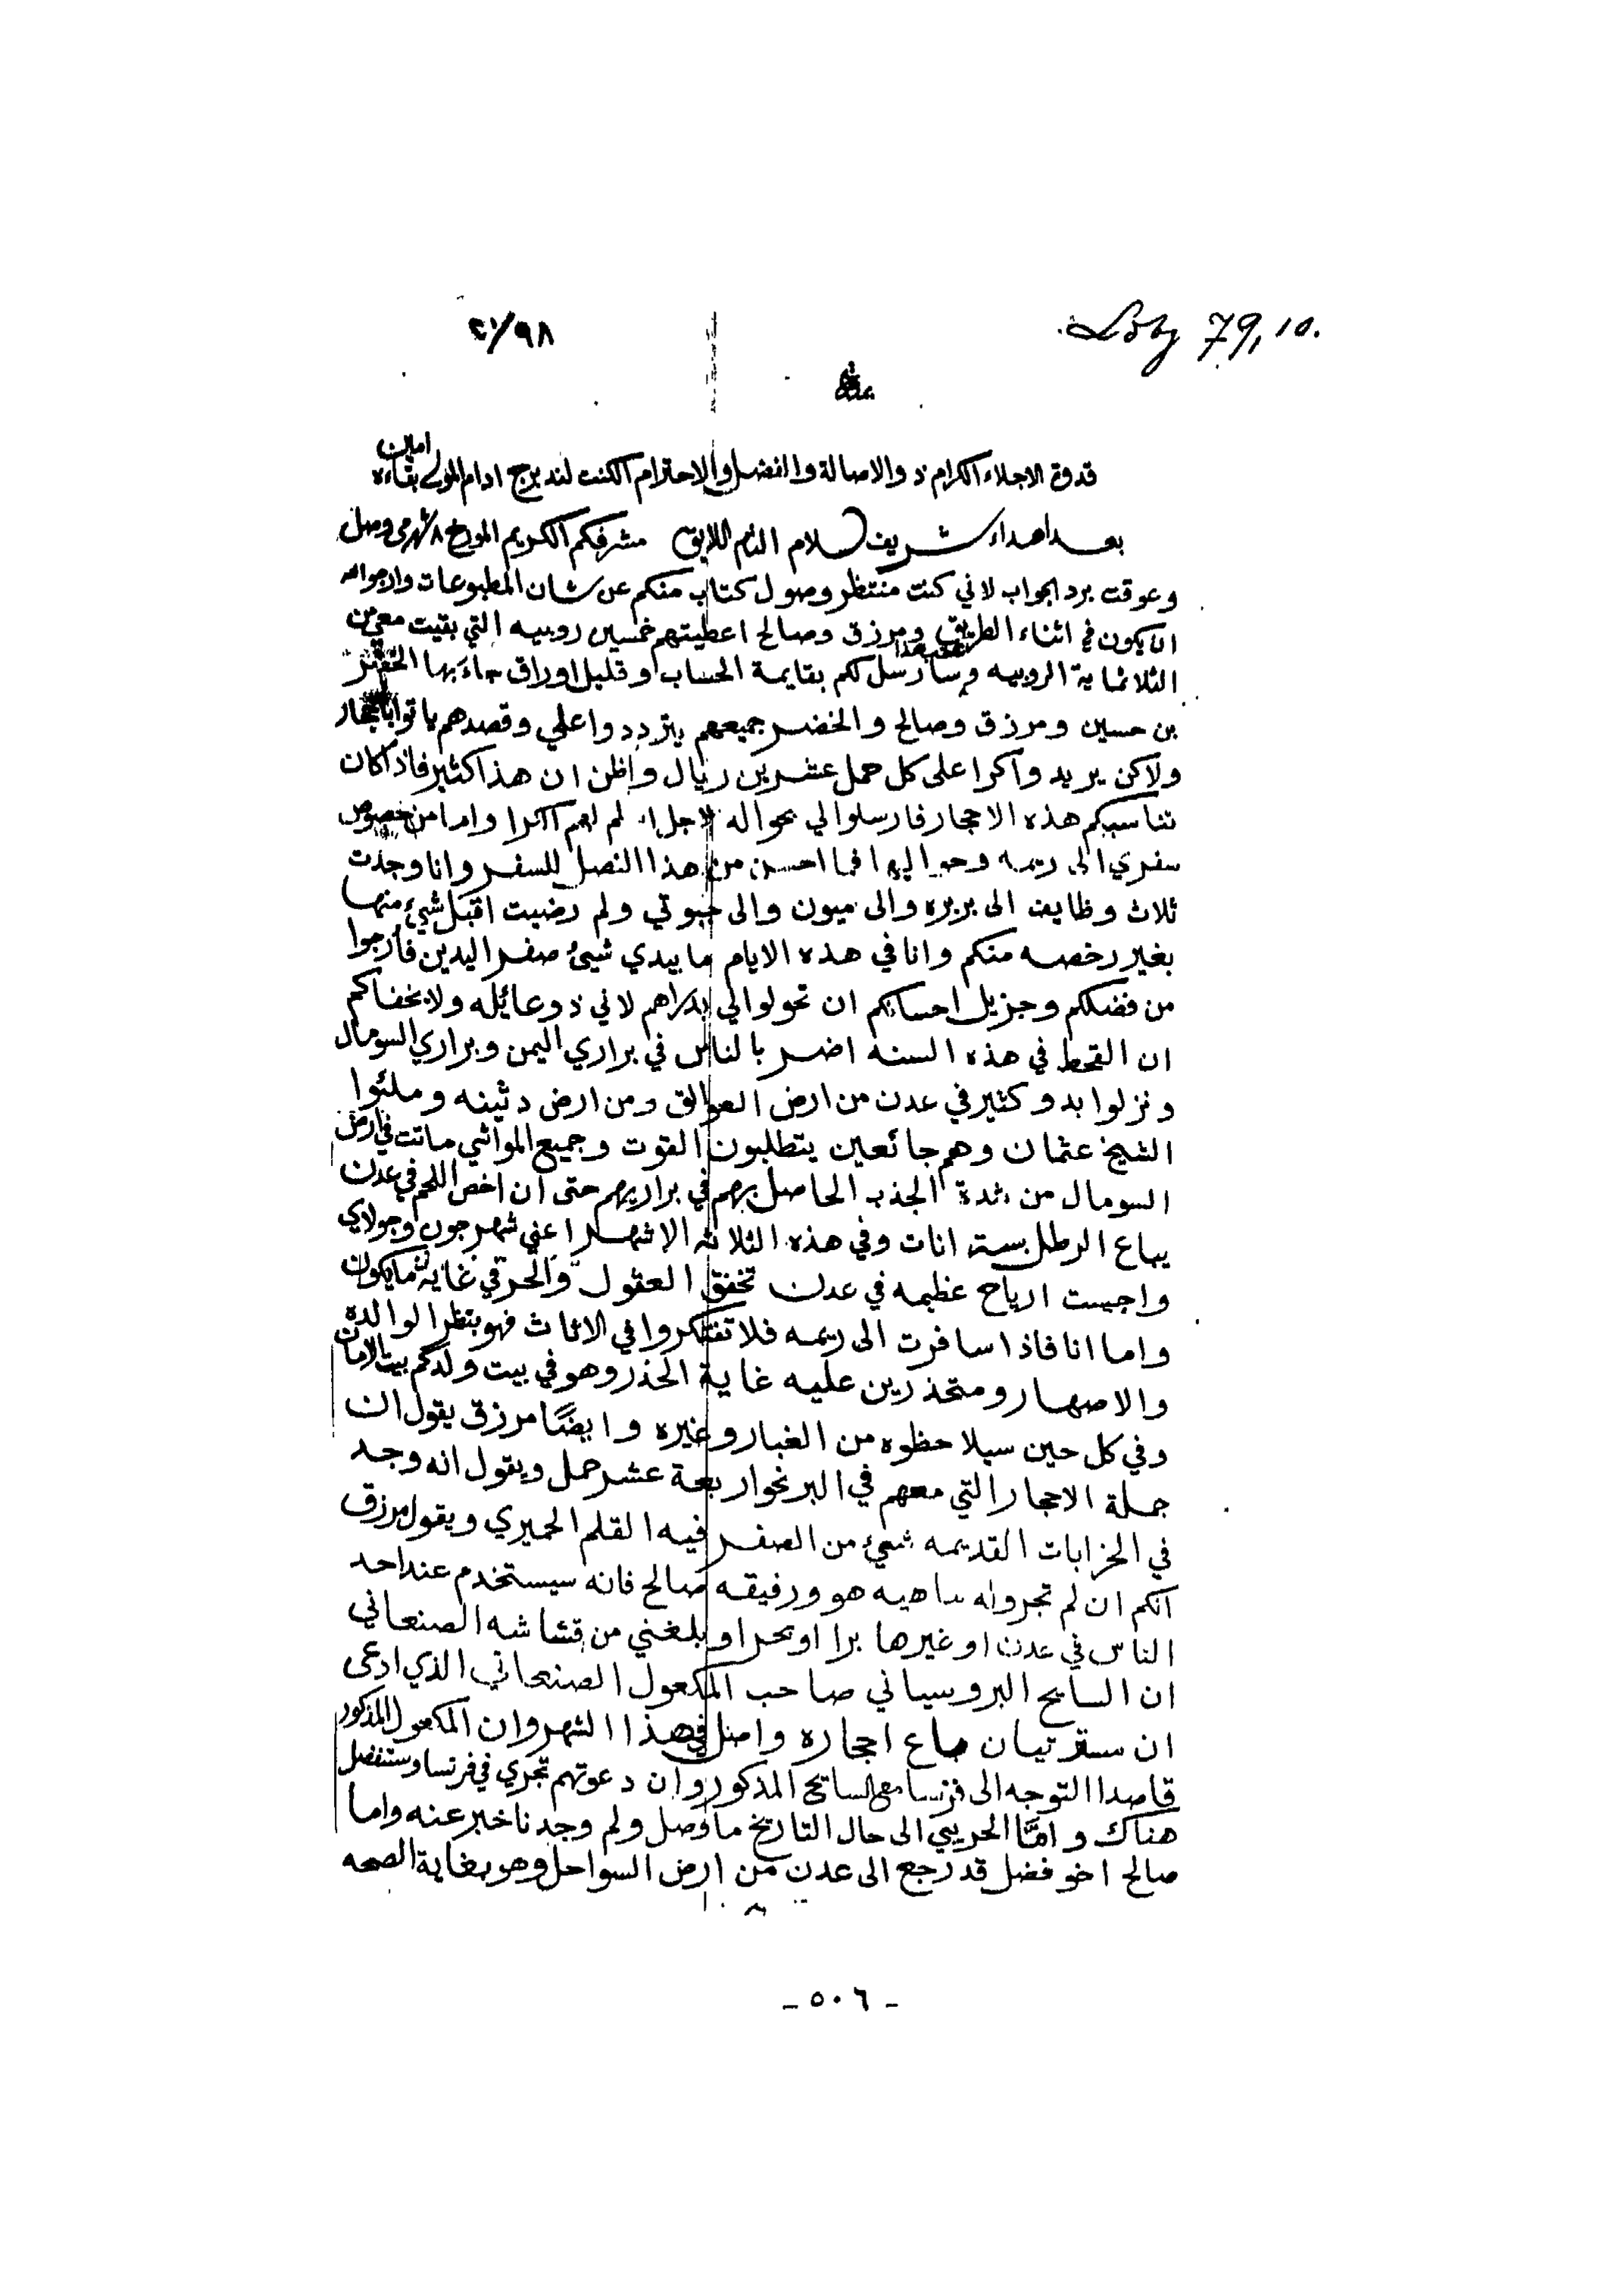 79,10.
٩٨
عدن
قدوة الاجلاء الكرام ذو الاصالة والفضل والاحترام الكنت لندبرج ادام المولى بقاءه امين
بعد اهداء شريف سلام التام اللايق مشرفكم الكريم المورخ ٨ شهرمي وصل
وعوقت برد الجواب لاني كنت منتظر وصول كتاب منكم عن شان المطبوعات وارجو انه
ان يكون في اثناء الطريق ومرزق وصالح اعطيتهم خمسين روبيه التي بقيت معي من
الثلاثماية الروبيه وسارسل لكم بقايمة الحساب وقليل اوراق جاء بها الخضر
بن حسين ومرزق وصالح والخضر جميعهم يترددوا علي وقصدهم ياتوا باحجار
ولاكن يريدوا كرا على كل حمل عشرين ريال واظن ان هذا كثير فاذا كان
تناسبكم هذه الاحجار فارسلوا لي بحواله لاجل اسلم لهم الكرا واما من خصوص
سفري الى ريمه وحواليها فما احسن من هذا الفصل للسفر وانا وجدت
ثلاث وظايف الى بربره والى ميون والى جبوتي ولم رضيت اقبل شيئ منها
بغير رخصه منكم وانا في هذه الايام ما بيدي شيئ صفر اليدين فارجوا
من فضلكم وجزيل احسانكم ان تحولوا لي بدراهم لاني ذو عائله ولا يخفاكم
ان القحط في هذه السنه اضر بالناس في براري اليمن وبراري السومال
ونزلوا بدو كثير في عدن من ارض العوالق ومن ارض دثينه وملئوا
الشيخ عثمان وهم جائعين يتطلبون القوت وجميع المواشي ماتت في ارض
السومال من شدة الجذب الحاصل بهم في براريهم حتى ان اخص اللحم في عدن
يباع الرطل بستة انات وفي هذه الثلاثه الاشهر اعني شهر جون وجولاي
واجست ارياح عظيمه في عدن تخفق العقول والحر في غاية ما يكون
واما انا فاذا سافرت الى ريمه فلا تفتكروا في الاثاث فهو بنظر الوالده
والاصهار ومتحذرين عليه غاية الحذر وهو في بيت ولدكم بيت الامان
وفي كل حين سيلاحظوه من الغبار وغيره وايضًا مرزق يقول ان
جملة الاحجار التي معهم في البر نحو اربعة عشر حمل ويقول انه وجد
في الخرابات القديمه شيئ من الصفر فيه القلم الحميري ويقول مرزق
انكم ان لم تجروا له ماهيه هو ورفيقه صالح فانه سيستخدم عند احد
الناس في عدن او غيرها برا او بحرا وبلغني من قشاشه الصنعاني
ان السايح البروسياني صاحب المكعول الصنعاني الذي ادعى
ان ستر تيان باع احجاره واصل في هذا الشهر وان المكعول المذكور
قاصدا التوجه الى فرنسا مع السايح المذكور وان دعوتهم تجري في فرنسا وستفصل
هناك وامَّا الحريبي الى حال التاريخ ما وصل ولم وجدنا خبر عنه واما
صالح اخو فضل قد رجع الى عدن من ارض السواحل وهو بغاية الصحه
- ٥٠٦ -